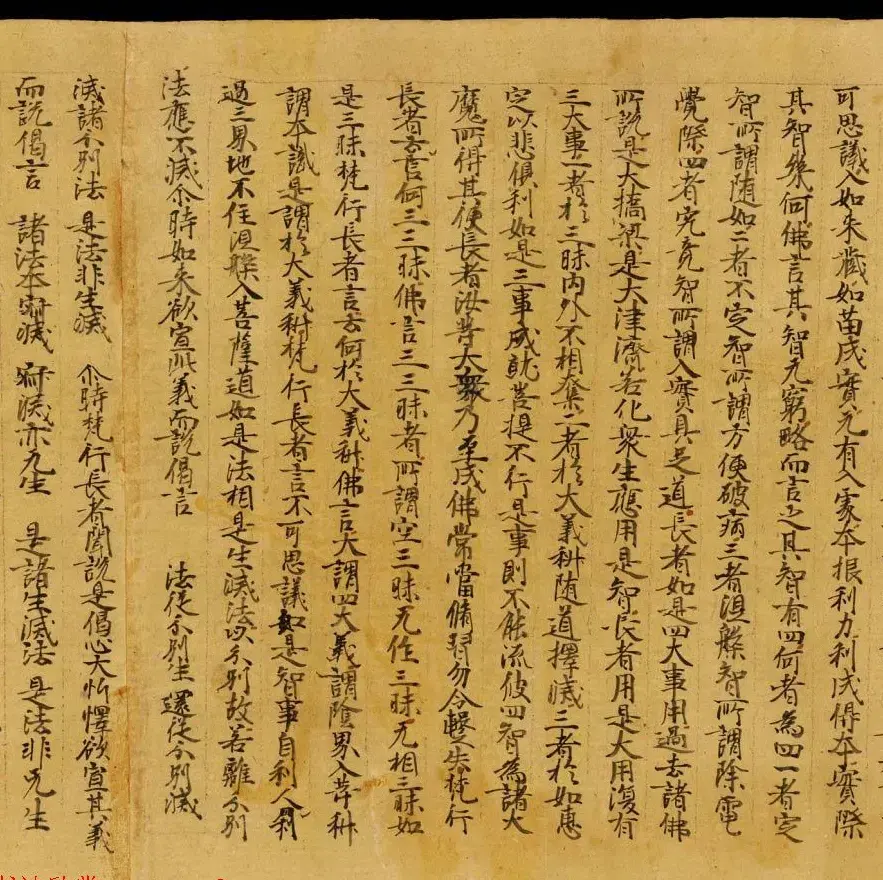 可思議入如来藏如苗成實无有入處本根利力利成得本實際
其智幾何佛言其智无窮略而言之其智有四何者為四一者定
智所謂随如二者不定智所謂方便破病三者涅槃智所謂除電
覺際四者究竟智所謂入實具足道長者如是四大事用過去諸佛
所說是大橋梁是大津濟若化衆生應用是智長者用是大用復有
三大事一者於三昧内外不相奪二者於大義科随道擇滅三者於如惠
定以悲俱利如是三事成就菩提不行是事則不能流彼四智為諸大
魔所得其便長者汝等大衆乃至成佛常當脩習勿令暫失梵行
長者言云何三三昧佛言三三昧者所謂空三昧无住三昧无相三昧如
是三昧梵行長者言云何於大義科佛言大謂四大義謂陰界入等科
謂本識是謂於大義科梵行長者言不可思議如是智事自利人利
過三界地不住涅槃入菩薩道如是法相是生滅法以分別故若離分別
法應不滅尒時如来欲宣此義而說偈言 法從分別生 還從分別滅
滅諸分別法 是法非生滅 尒時梵行長者聞說是偈心大忻懌欲宣其義
而說偈言 諸法本寂滅 寂滅亦无生 是諸生滅法 是法非无生